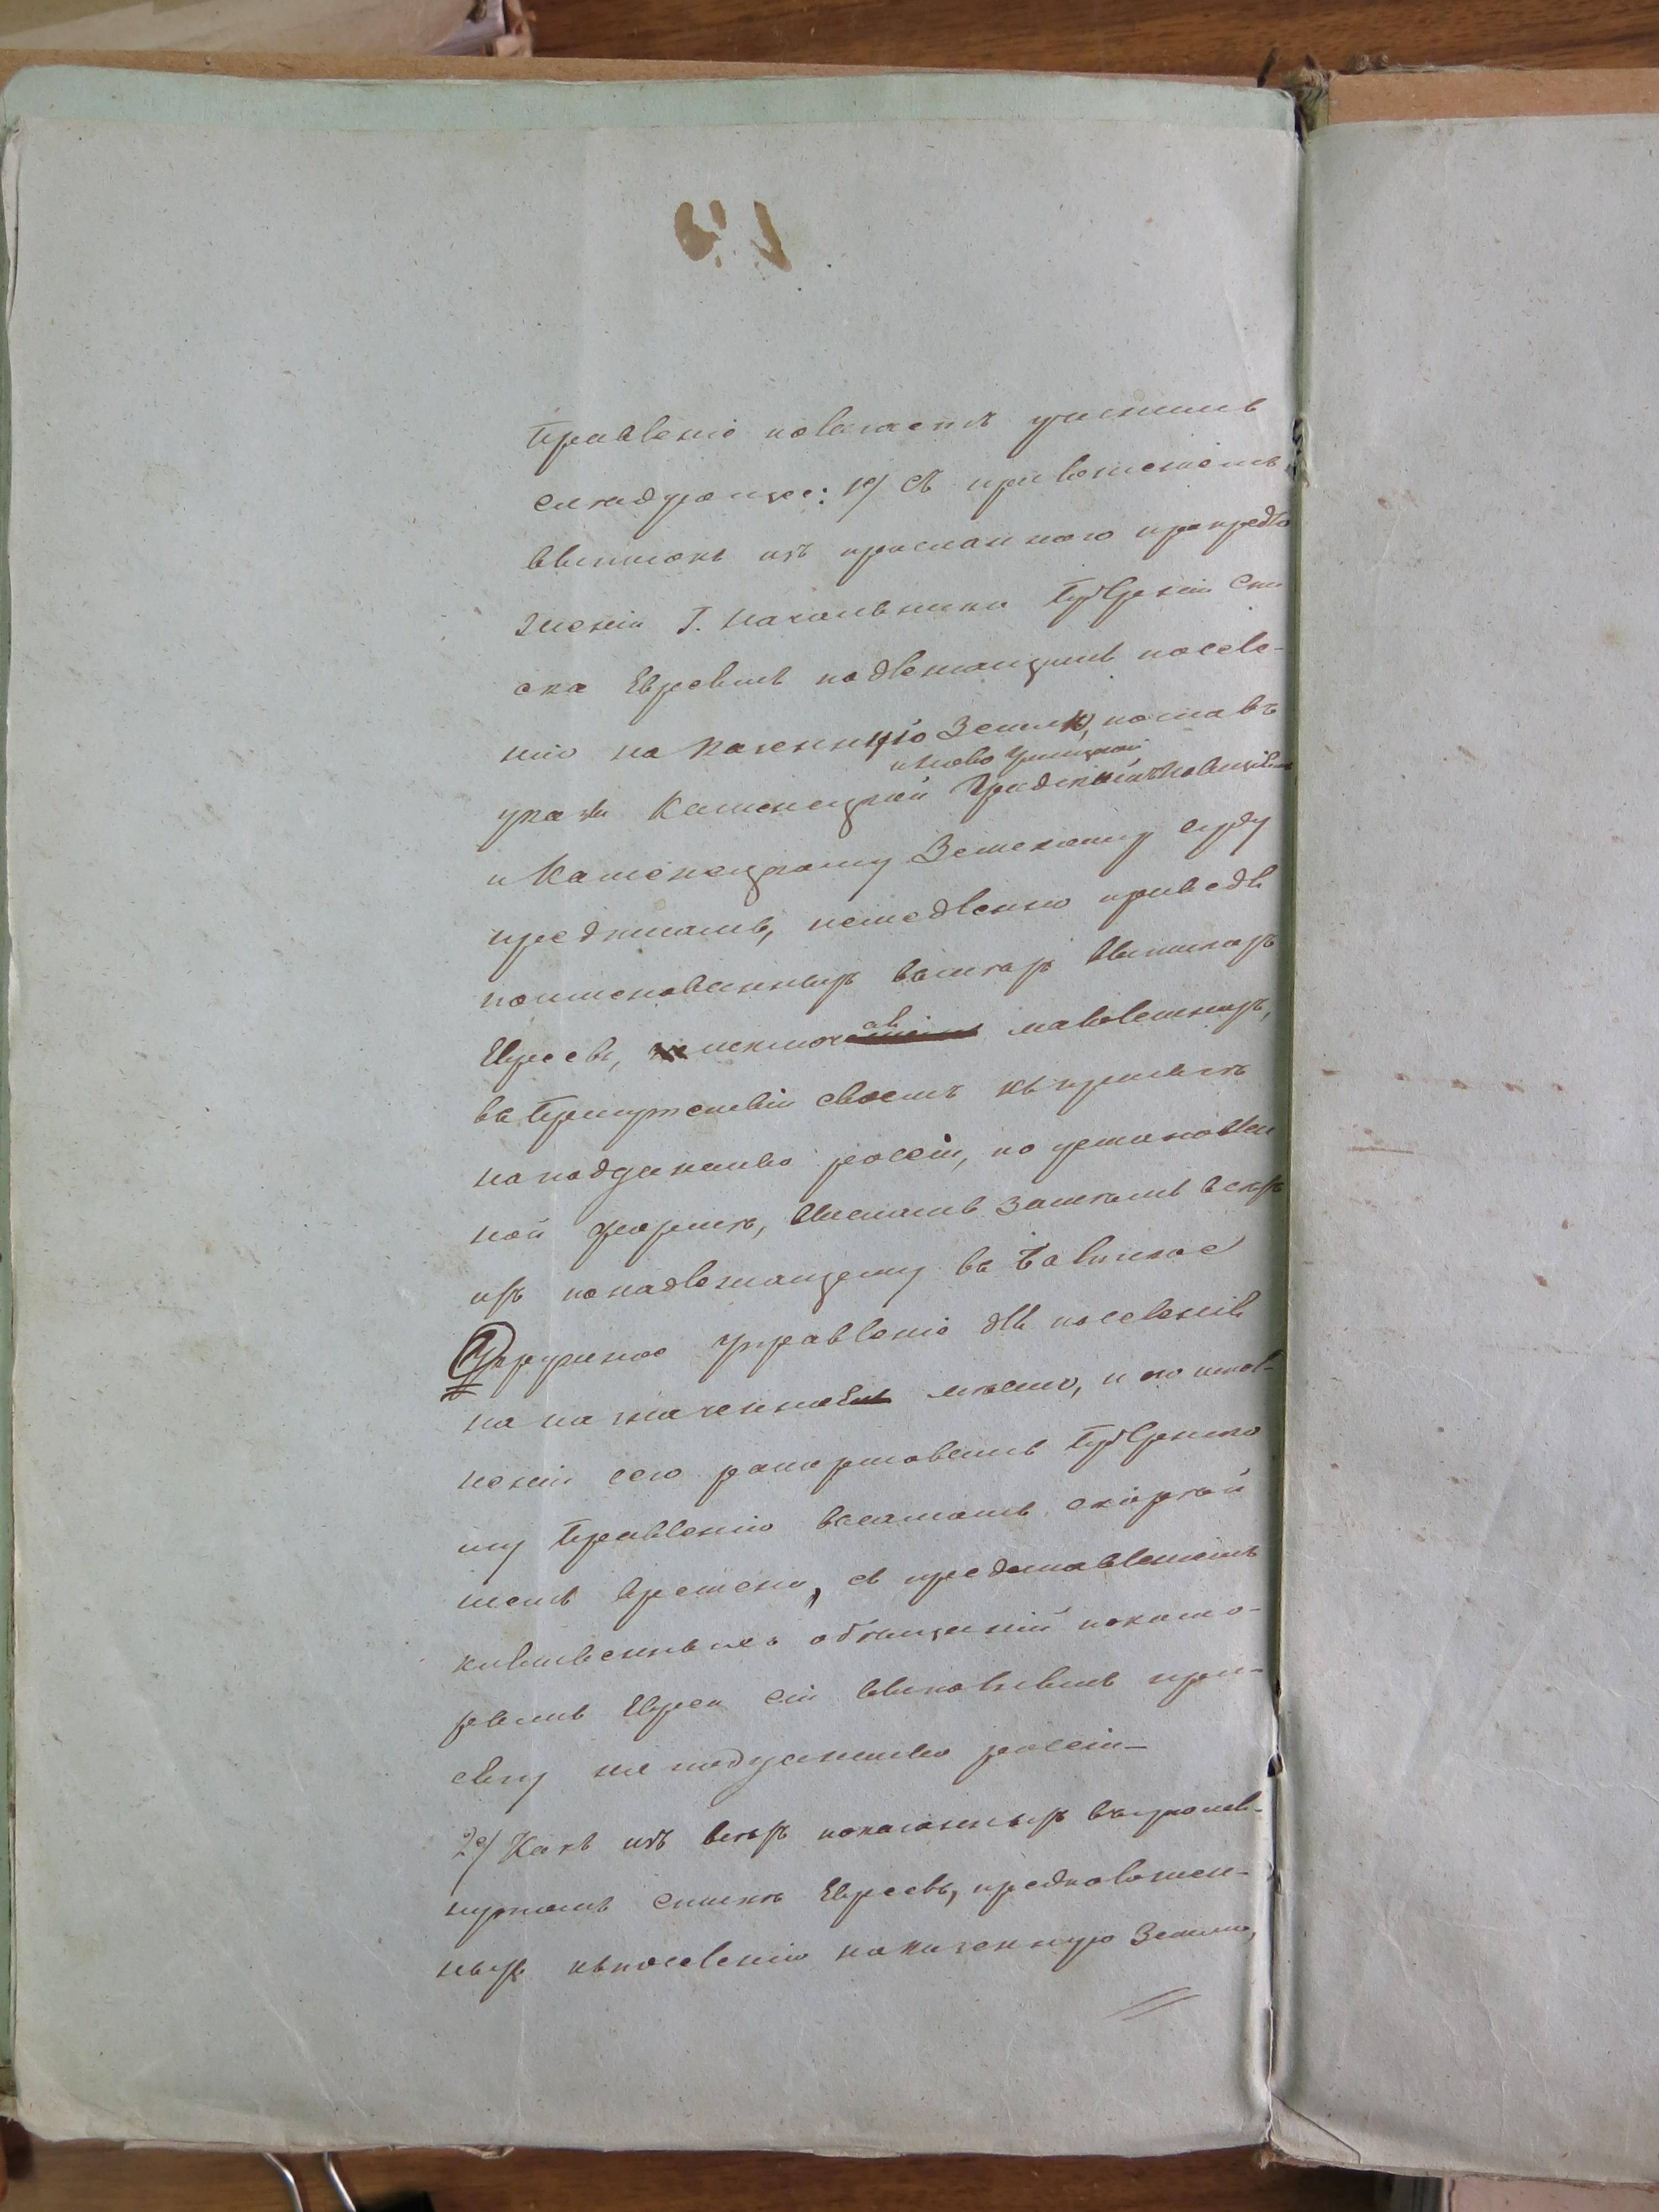 Правленіе полагаетъ учинить
слѣдующее: 1е/ Съ приложеніемъ
выписокъ изъ присланного при предло
женіи Г. Начальника Губерніи Спи
ска Евреямъ подлежащимъ поселе-
нію на казенную Землю, послать
и Ново Ушицкой
указы Каменецкой Градской Полиціямъ
и Каменецкому Земскому Суду
предписать, немедленно приведя
поименованныхъ въ тѣхъ выпискахъ
Евреевъ, исключая малолетнихъ,
въ Присутствіи своемъ къ присягѣ
на подданство россіи, по установлен
ной формѣ, выслать затѣмъ всѣхъ
ихъ по надлежащему въ Балтское
Окружное Управленіе для поселенія
на назначенное мѣсто, и о исполне-
неніи сего рапортовать Губернско
му Правленію въ самомъ скорѣй
шемъ времени, съ представленіемъ
клятвенныхъ обѣщаній по кото-
рымъ Евреи сіи выполнятъ при-
сягу на подданство россіи —
2е/ Какъ изъ всѣхъ показанныхъ въ упомя-
нутомъ списке Евреевъ, предположен-
ныхъ къ поселенію на казенную Землю,